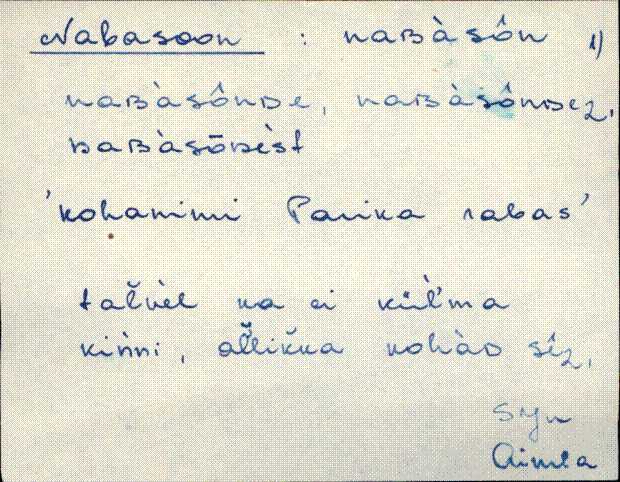 Nabasoon : naʙàsôn 1)
naʙàsônᴅe, naʙàsônᴅez,
naʙàsōᴅèst
'kohanimi Parika rabas'
talvèl ka ei kül'ma
kińni, allikka kohàᴅ sîz,
Syn
Aimla